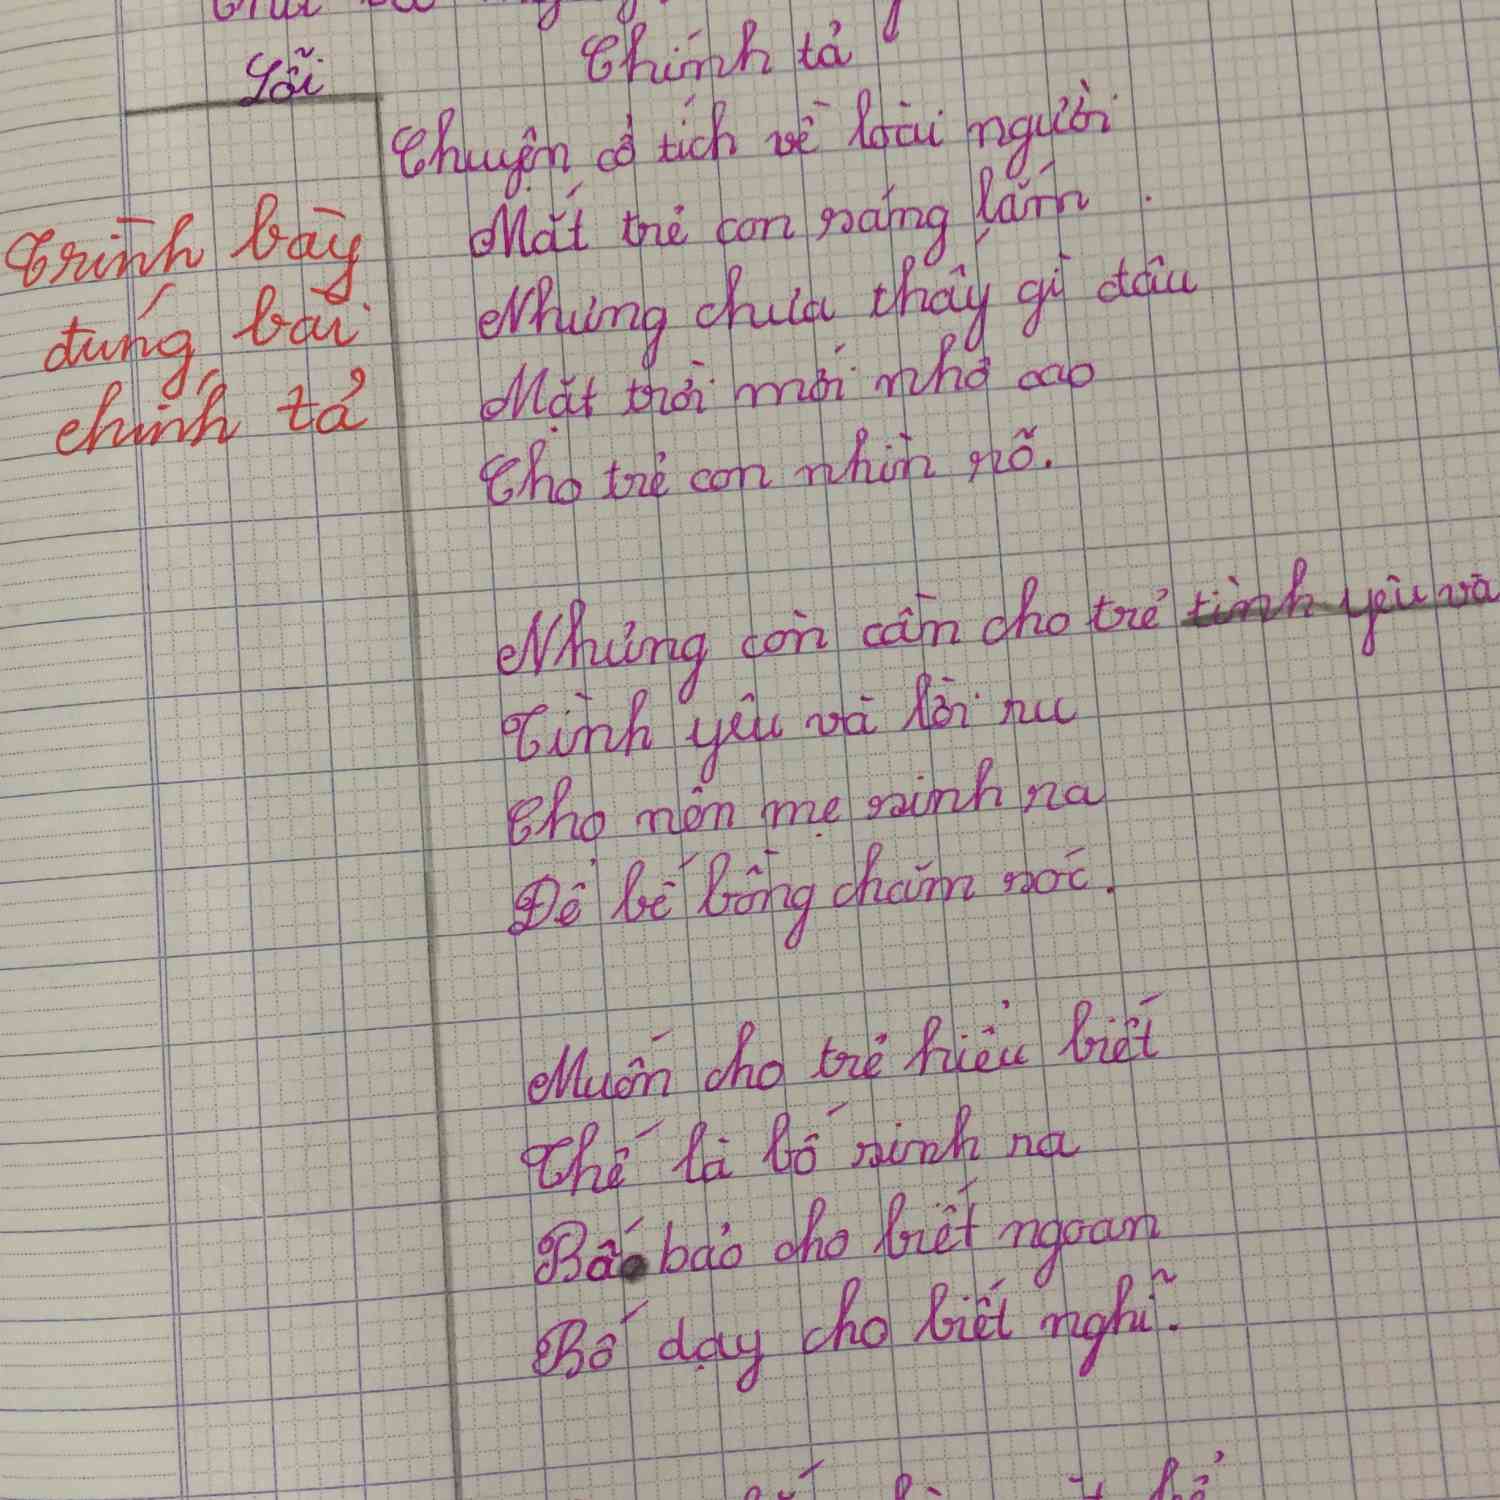 Chính tả
Lỗi
Chuyện cổ tích về loài người
Mắt trẻ con sáng lắm
Nhưng chưa thấy gì đâu
Mặt trời mới nhô cao
Cho trẻ con nhìn rõ.
Trình bày
đúng bài
chính tả
Nhưng còn cần cho trẻ tình yêu và
Tình yêu và lời ru
Cho nên mẹ sinh ra
Để bế bồng chăm sóc.
Muốn cho trẻ hiểu biết
Thế là bố sinh ra
Bố bảo cho biết ngoan
Bố dạy cho biết nghĩ.